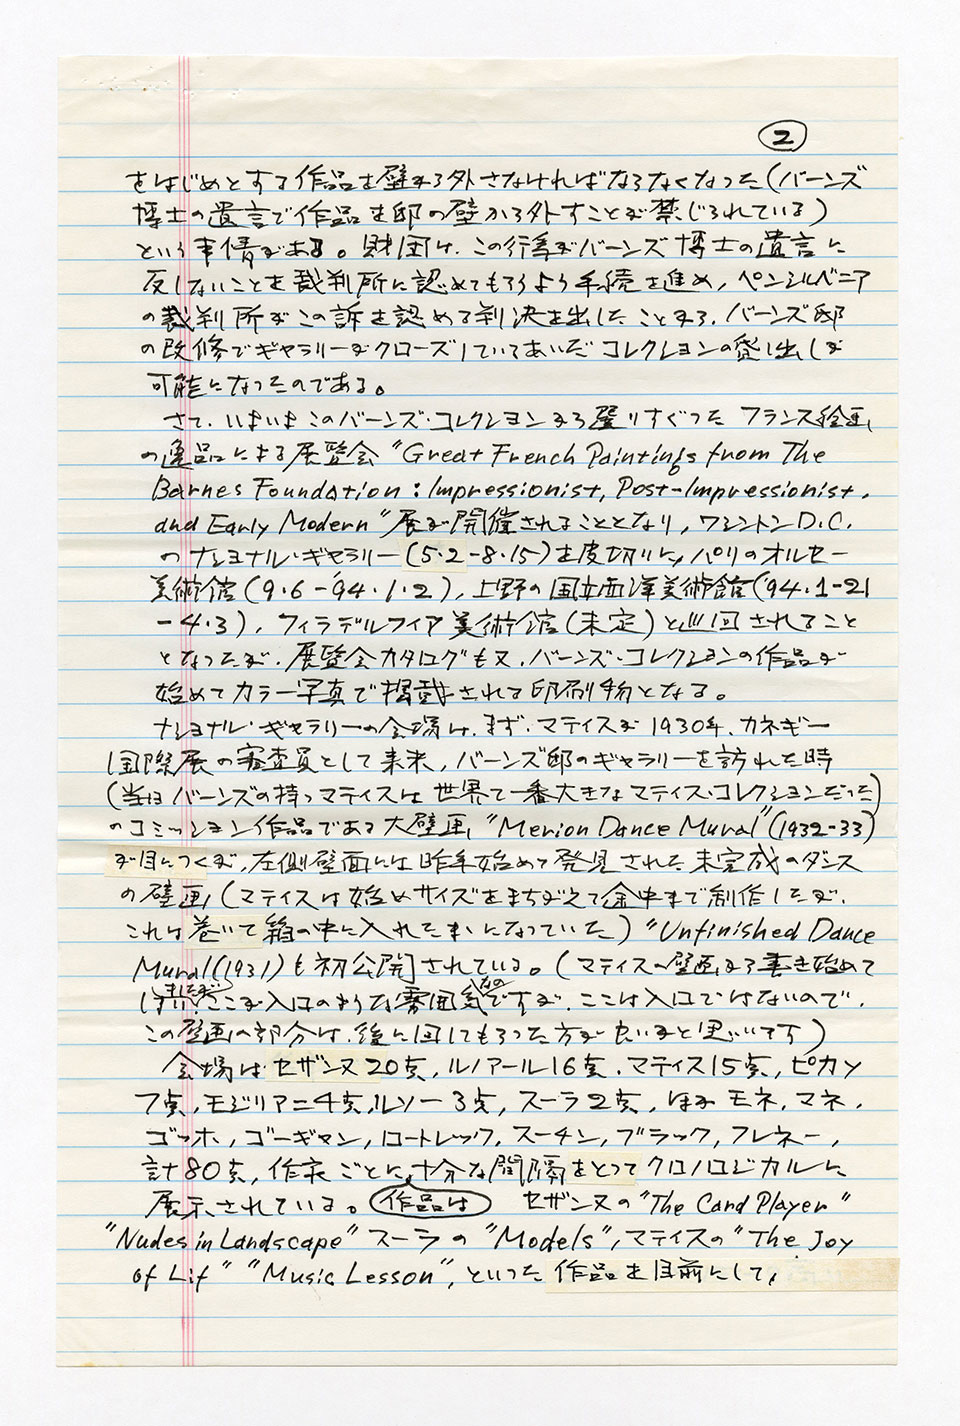 ②
をはじめとする作品を壁から外さなければならなくなった(バーンズ
博士の遺言で作品を邸の壁から外すことが禁じられている)
という事情がある。財団は、この行為がバーンズ博士の遺言に
反しないことを裁判所に認めてもらうよう手続を進め,ペンシルベニア
の裁判所がこの訴を認める判決を出したことから、バーンズ邸
の改修でギャラリーがクローズしているあいだコレクションの貸し出しが
可能になったのである。
さて、いよいよこのバーンズ・コレクションから選りすぐったフランス絵画
の逸品による展覧会"Great French Paintings from The
Barnes Foundation : Impressionist, Post-Impressionist,
and Early Modern"展が開催されることとなり,ワシントンD.C.
のナショナル・ギャラリー(5・2-8・15)を皮切りに,パリのオルセー
美術館(9・6-'94・1・2),上野の国立西洋美術館('94・1-21
-4・3),フィラデルフィア美術館(未定)と巡回されること
となったが、展覧会カタログも又、バーンズ・コレクションの作品が
始めてカラー写真で掲載される印刷物となる。
ナショナル・ギャラリーの会場は、まず、マティスが1930年、カネギー
国際展の審査員として来米,バーンズ邸のギャラリーを訪れた時
(当時バーンズの持つマティスは世界で一番大きなマティス・コレクションだった)
のコミッション作品である大壁画"Merion Dance Mural"(1932-33)
が目につくが,左側壁面には昨年始めて発見された未完成のダンス
の壁画(マティスは始めサイズをまちがえて途中まで制作したが、
これは巻いて箱の中に入れたままになっていた)"Unfinished Dance
Mural(1931)も初公開されている。(マティスの壁画から書き始めて
しまいましたが
ここが入口のような雰囲気なのですが、ここは入口ではないので、
この壁画の部分は、後に回してもらった方が良いかと思います)
会場はセザンヌ20点,ルノアール16点、マティス15点,ピカソ
7点,モジリアニ4点,ルソー3点,スーラ2点,ほかモネ,マネ,
ゴッホ,ゴーギャン,ロートレック,スーチン,ブラック,フレネー,
計80点,作家ごとに,十分な間隔をとってクロノロジカルに
展示されている。作品は セザンヌの"The Card Player"
"Nudes in Landscape"スーラの"Models",マティスの"The Joy
of Lif" "Music Lesson",といった作品を目前にして,